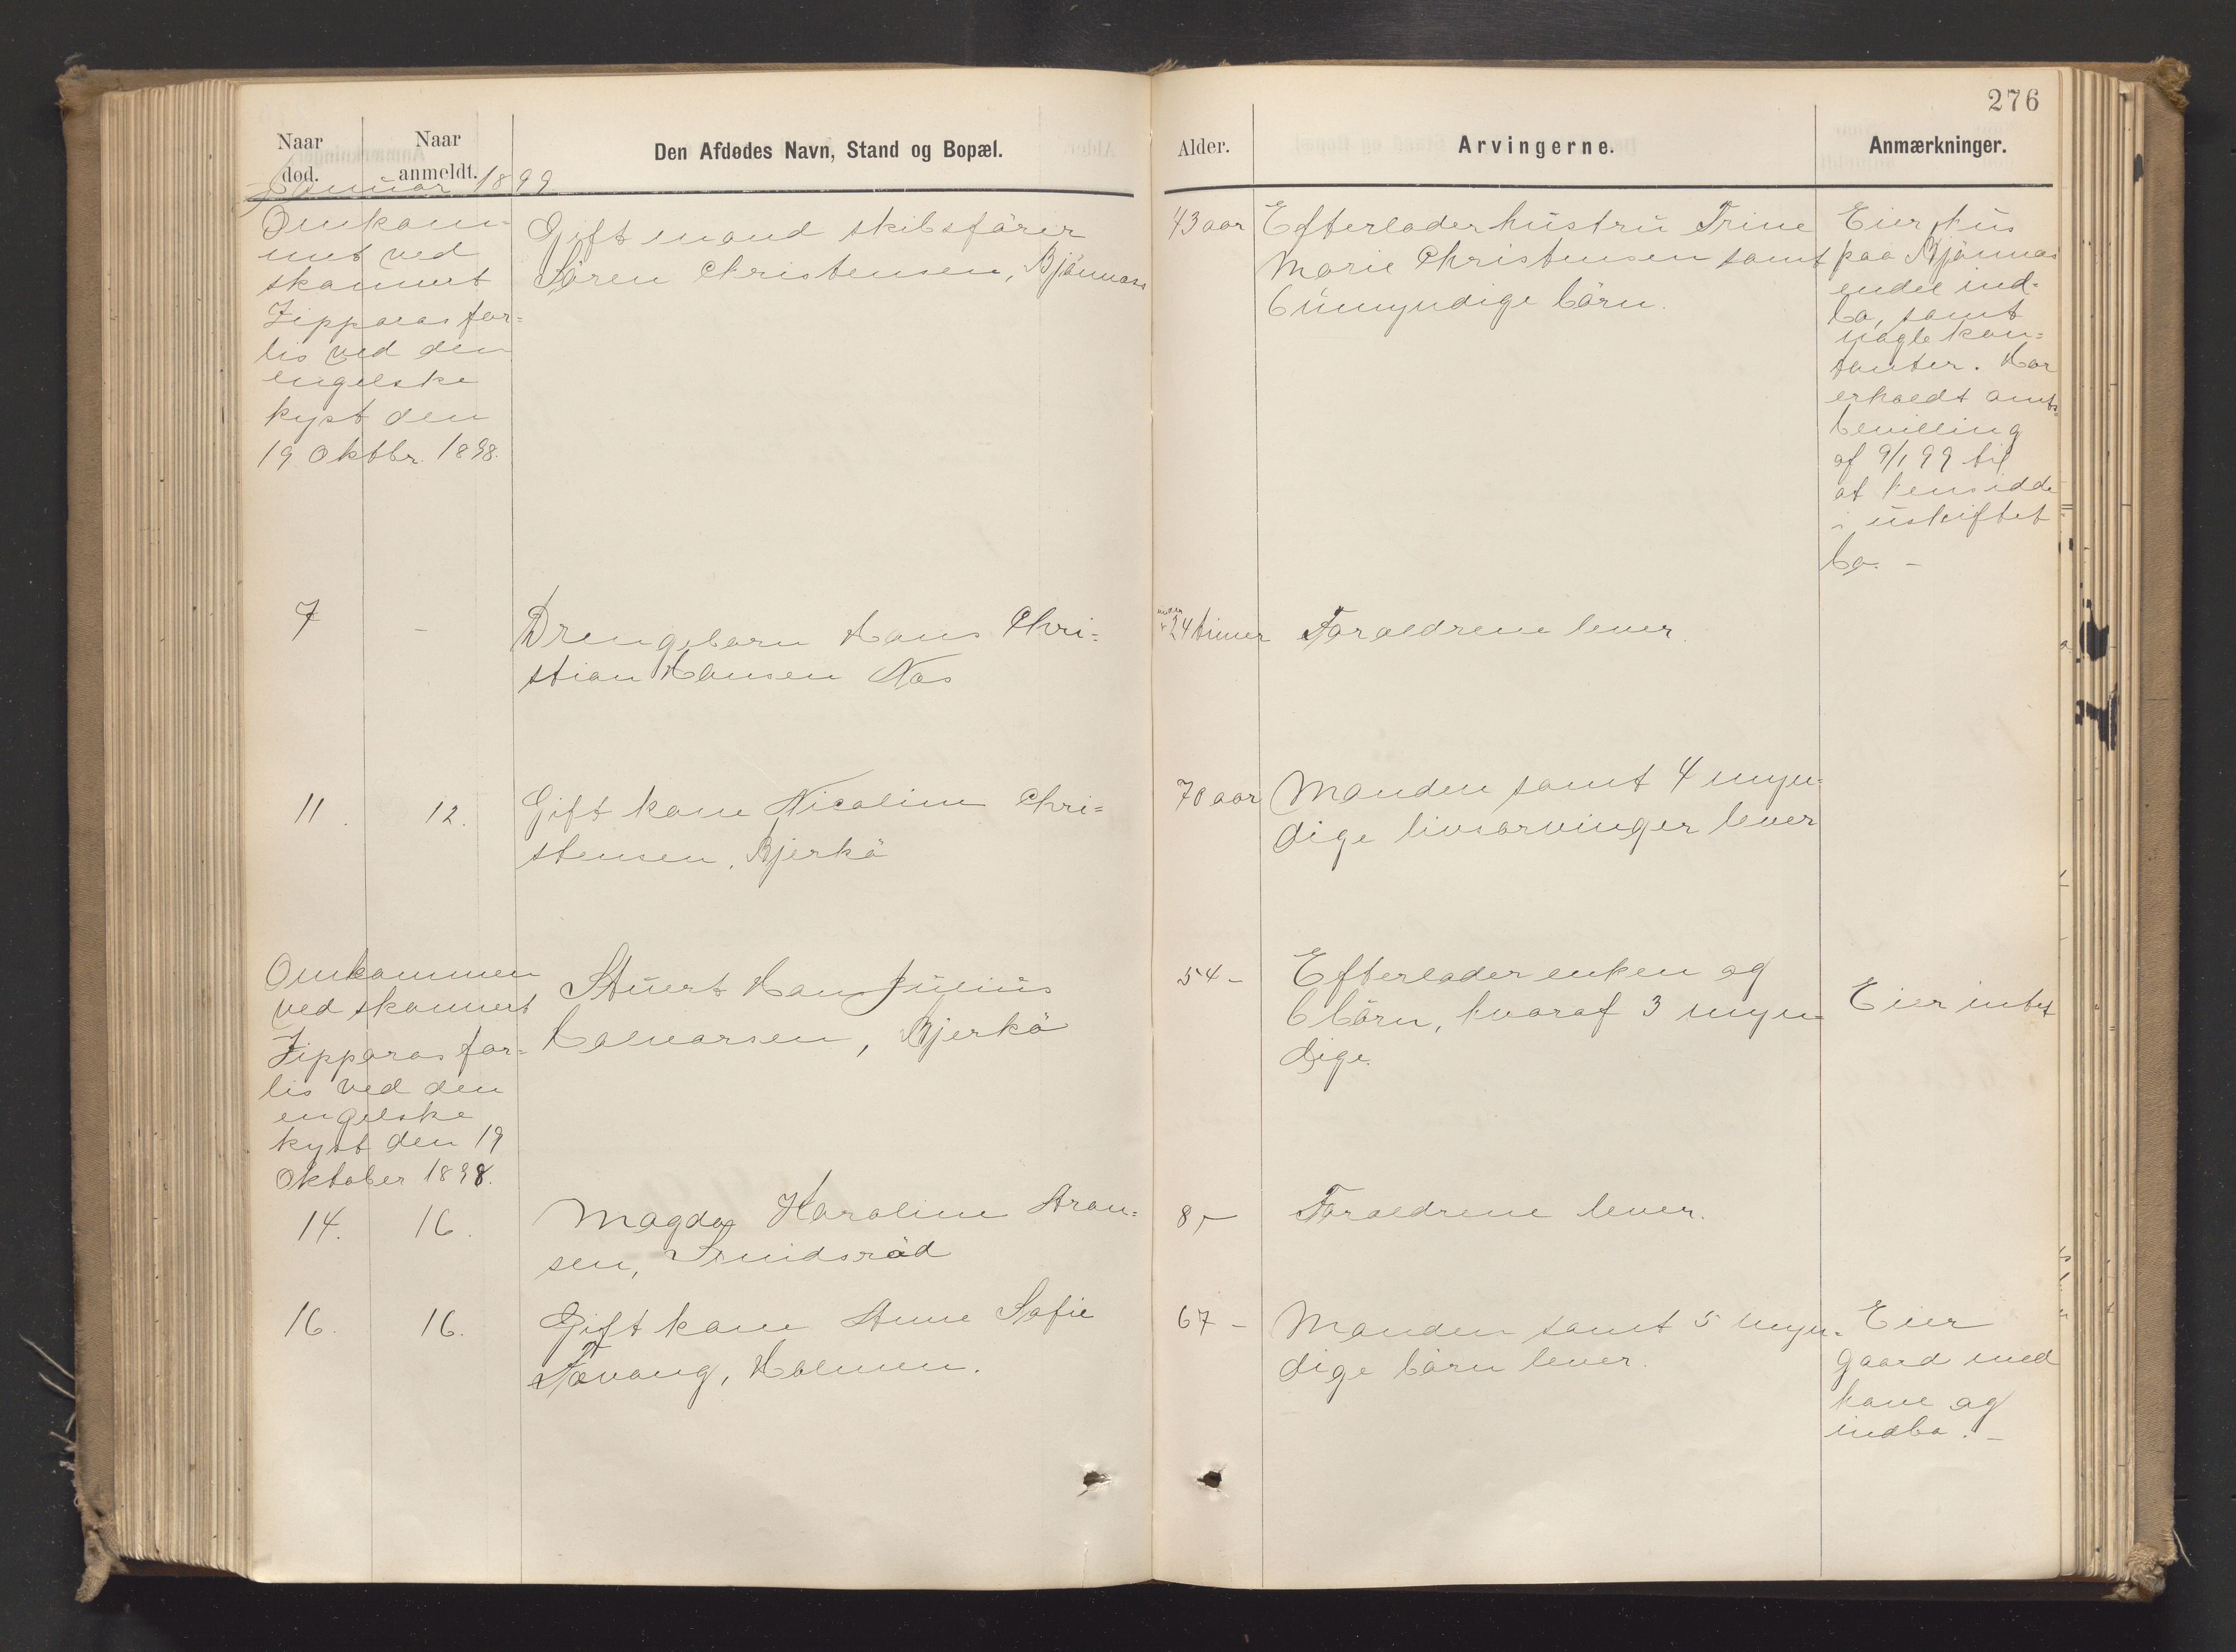 276
Naar død.
Naar anmeldt.
Den Afdødes Navn, Stand og Bopæl.
Alder.
Arvingerne.
Anmærkninger.
Januar 1899
Omkom=
met ved
skonnert
Zipporas for=
lis ved den
engelske
kyst den
19 Oktbr. 1898.
Gift mand skibsfører
Sören Christensen, Bjönnæs
43 aar
Efterlader hustru Trine
Marie Christensen samt
6 umyndige börn.
Eier hus
paa Bjönnæs
endel ind=
bo, samt
nogle kon=
tanter. Har
erholdt amts=
bevilling
af 9/1 99 til
at hensidde
i uskiftet
bo. -
7
-
Drengebarn Hans Chri=
stian Hansen Næs
24 timer
Foræeldrene lever.
11.
12.
Gift kone Nicoline Chri=
stensen, Bjerkö
70 aar
Manden samt 4 myn=
dige livsarvinger lever
Omkommen
ved skonnert
Zipporas for=
lis ved den
engelske
kyst den 19
Oktober 1898.
Stuert Hans Julius
Halvorsen, Bjerkö
54 -
Efterlader enken og
6 börn, hvoraf 3 myn=
dige.
Eier intet
14.
16.
Magda Karoline Aron=
sen,
8 -
Forældrene lever.
16.
16.
Gift kone Anne Sofie
Holmen.
67 -
Manden samt 5 myn=
dige börn lever.
Eier
gaard med
have og
indbo. -